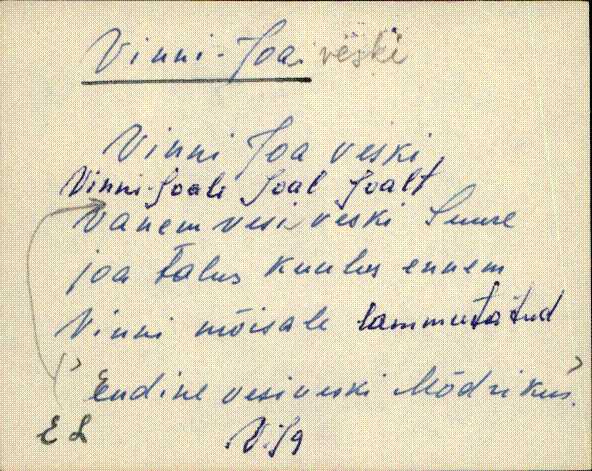 Vinni-Joa veski
Vinni Joa veski
Vinni-Joale Joal Joalt
Vanem vesiveski Suure
joa talus kuulus ennem
Vinni mõisale lammutatud
Endine vesiveski Mõdrikus.
EL V.Jg